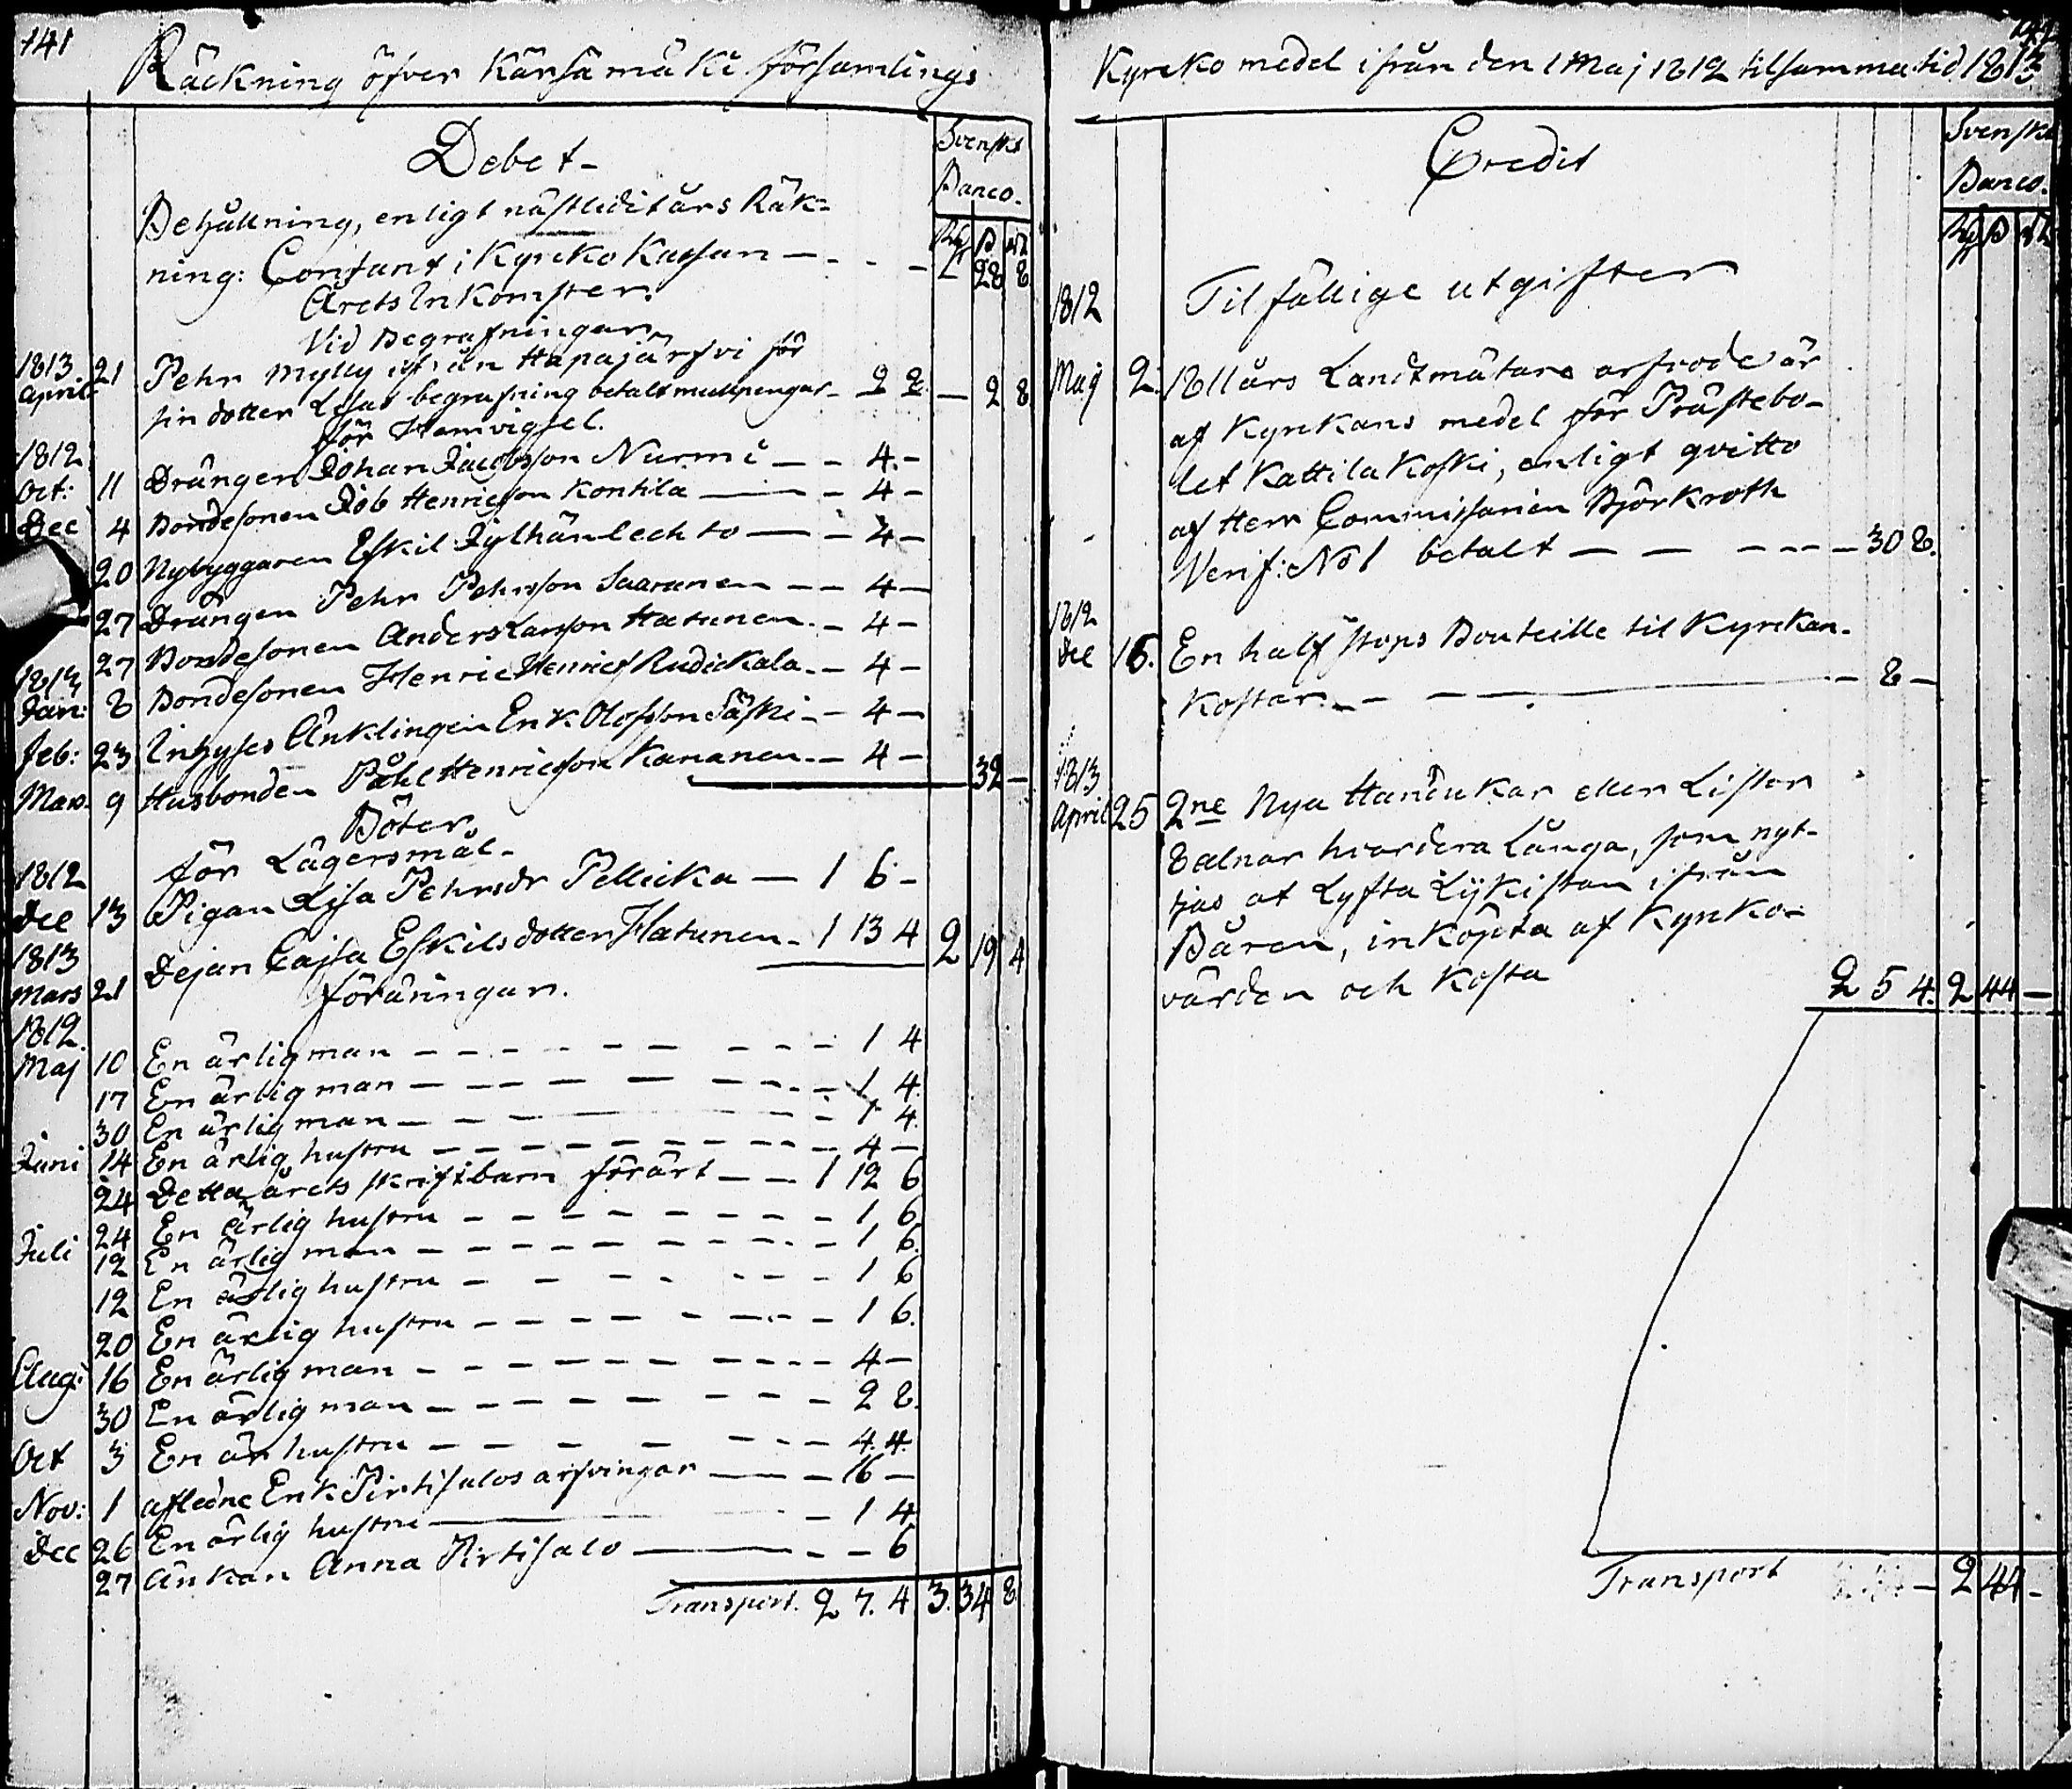 141
Räckning öfver Kärsämäki församlings
Debet
Svensk
Banco.
Behållning, enligt nästledit års Räk=
ning: Contant i Kyrko Kassan — 28 8
Årets Inkomster.
Vid Begrafningar
1813 April 21 Pehr Mylly ifrån Hapajärfvi för
sin dotter Lisas begrafning betalt mullpengar — 2 8. — 2 8
för Hemvigsel.
1812
Oct: 11 Drängen Johan Jacobsson Nurmi — 4. -
Dec 4 Bondesonen Job Henricsson Kontila — 4 -
20 Nybyggaren Eskil Jylhänlechto — 4 -
27 Drängen Pehr Pehrsson Saaranen — 4 -
27 Bondesonen Anders Larsson Hatunen. — 4 -
1813
Jan: 8 Bondesonen Henric Henrics Rudickala — 4 -
Feb: 23 Inhyses Änklingen Erik Olofsson Säski — 4 -
Mars. 9 Husbonden Påhl Henricsson Kananen — 4 - 32 -
Böter
för Lägersmål.
1812
Dec 13 Pigan Lisa Pehrsdr Pellicka — 1 6 -
1813
Mars 21 Dejan Cajsa Eskilsdotter Hatunen — 1 13 4 2 19 4
Föräringar.
1812
Maj 10 En ärlig man — 1 4
17 En ärlig man — 1 4.
30 En ärlig man — 1 4.
Juni 14 En ärlig hustru — 4 -
24 Detta årets skriftbarn förärt — 1 12 6
24 En ärlig hustru — 1 6
Juli 12 En ärlig man — 1 6.
12 En ärlig hustru — 1 6
20 En ärlig hustru — 1 6.
Aug: 16 En ärlig man — 4 -
30 En ärlig man — 2 8.
Oct 3 En är hustru — 4. 4.
Nov: 1 afledne Erik Pirtisalos arfvingar — 16 -
Dec 26 En ärlig hustru — 1 4
27 Änkan Anna Pirtisalo — 6
Transport. 2 7. 4 3. 34 8
Kyrko medel ifrån den 1 Maj 1812 til samma tid 1813
Credit
Svenska
Banco.
1812 Tilfällige utgifter
Maj 2. 1811 års Landtmätare arfvode är
af Kyrkans medel för Prästebo-
let Kattilakoski, enligt qvitto
af Herr Commissarien Björkroth
Verif: No 1 betalt — 30 8.
1812
Dec 16. En half stops Bouteille til Kyrkan.
Kostar — 8 -
1813
April 25 2ne Nya Handukar eller Lister
8 alnar hvardera Långa, som nyt-
tjas at Lyfta Likkistan ifrån
Båren, inköpta af Kyrko-
värden och kosta 2 5 4. 2 44 —
Transport — 2 44 -